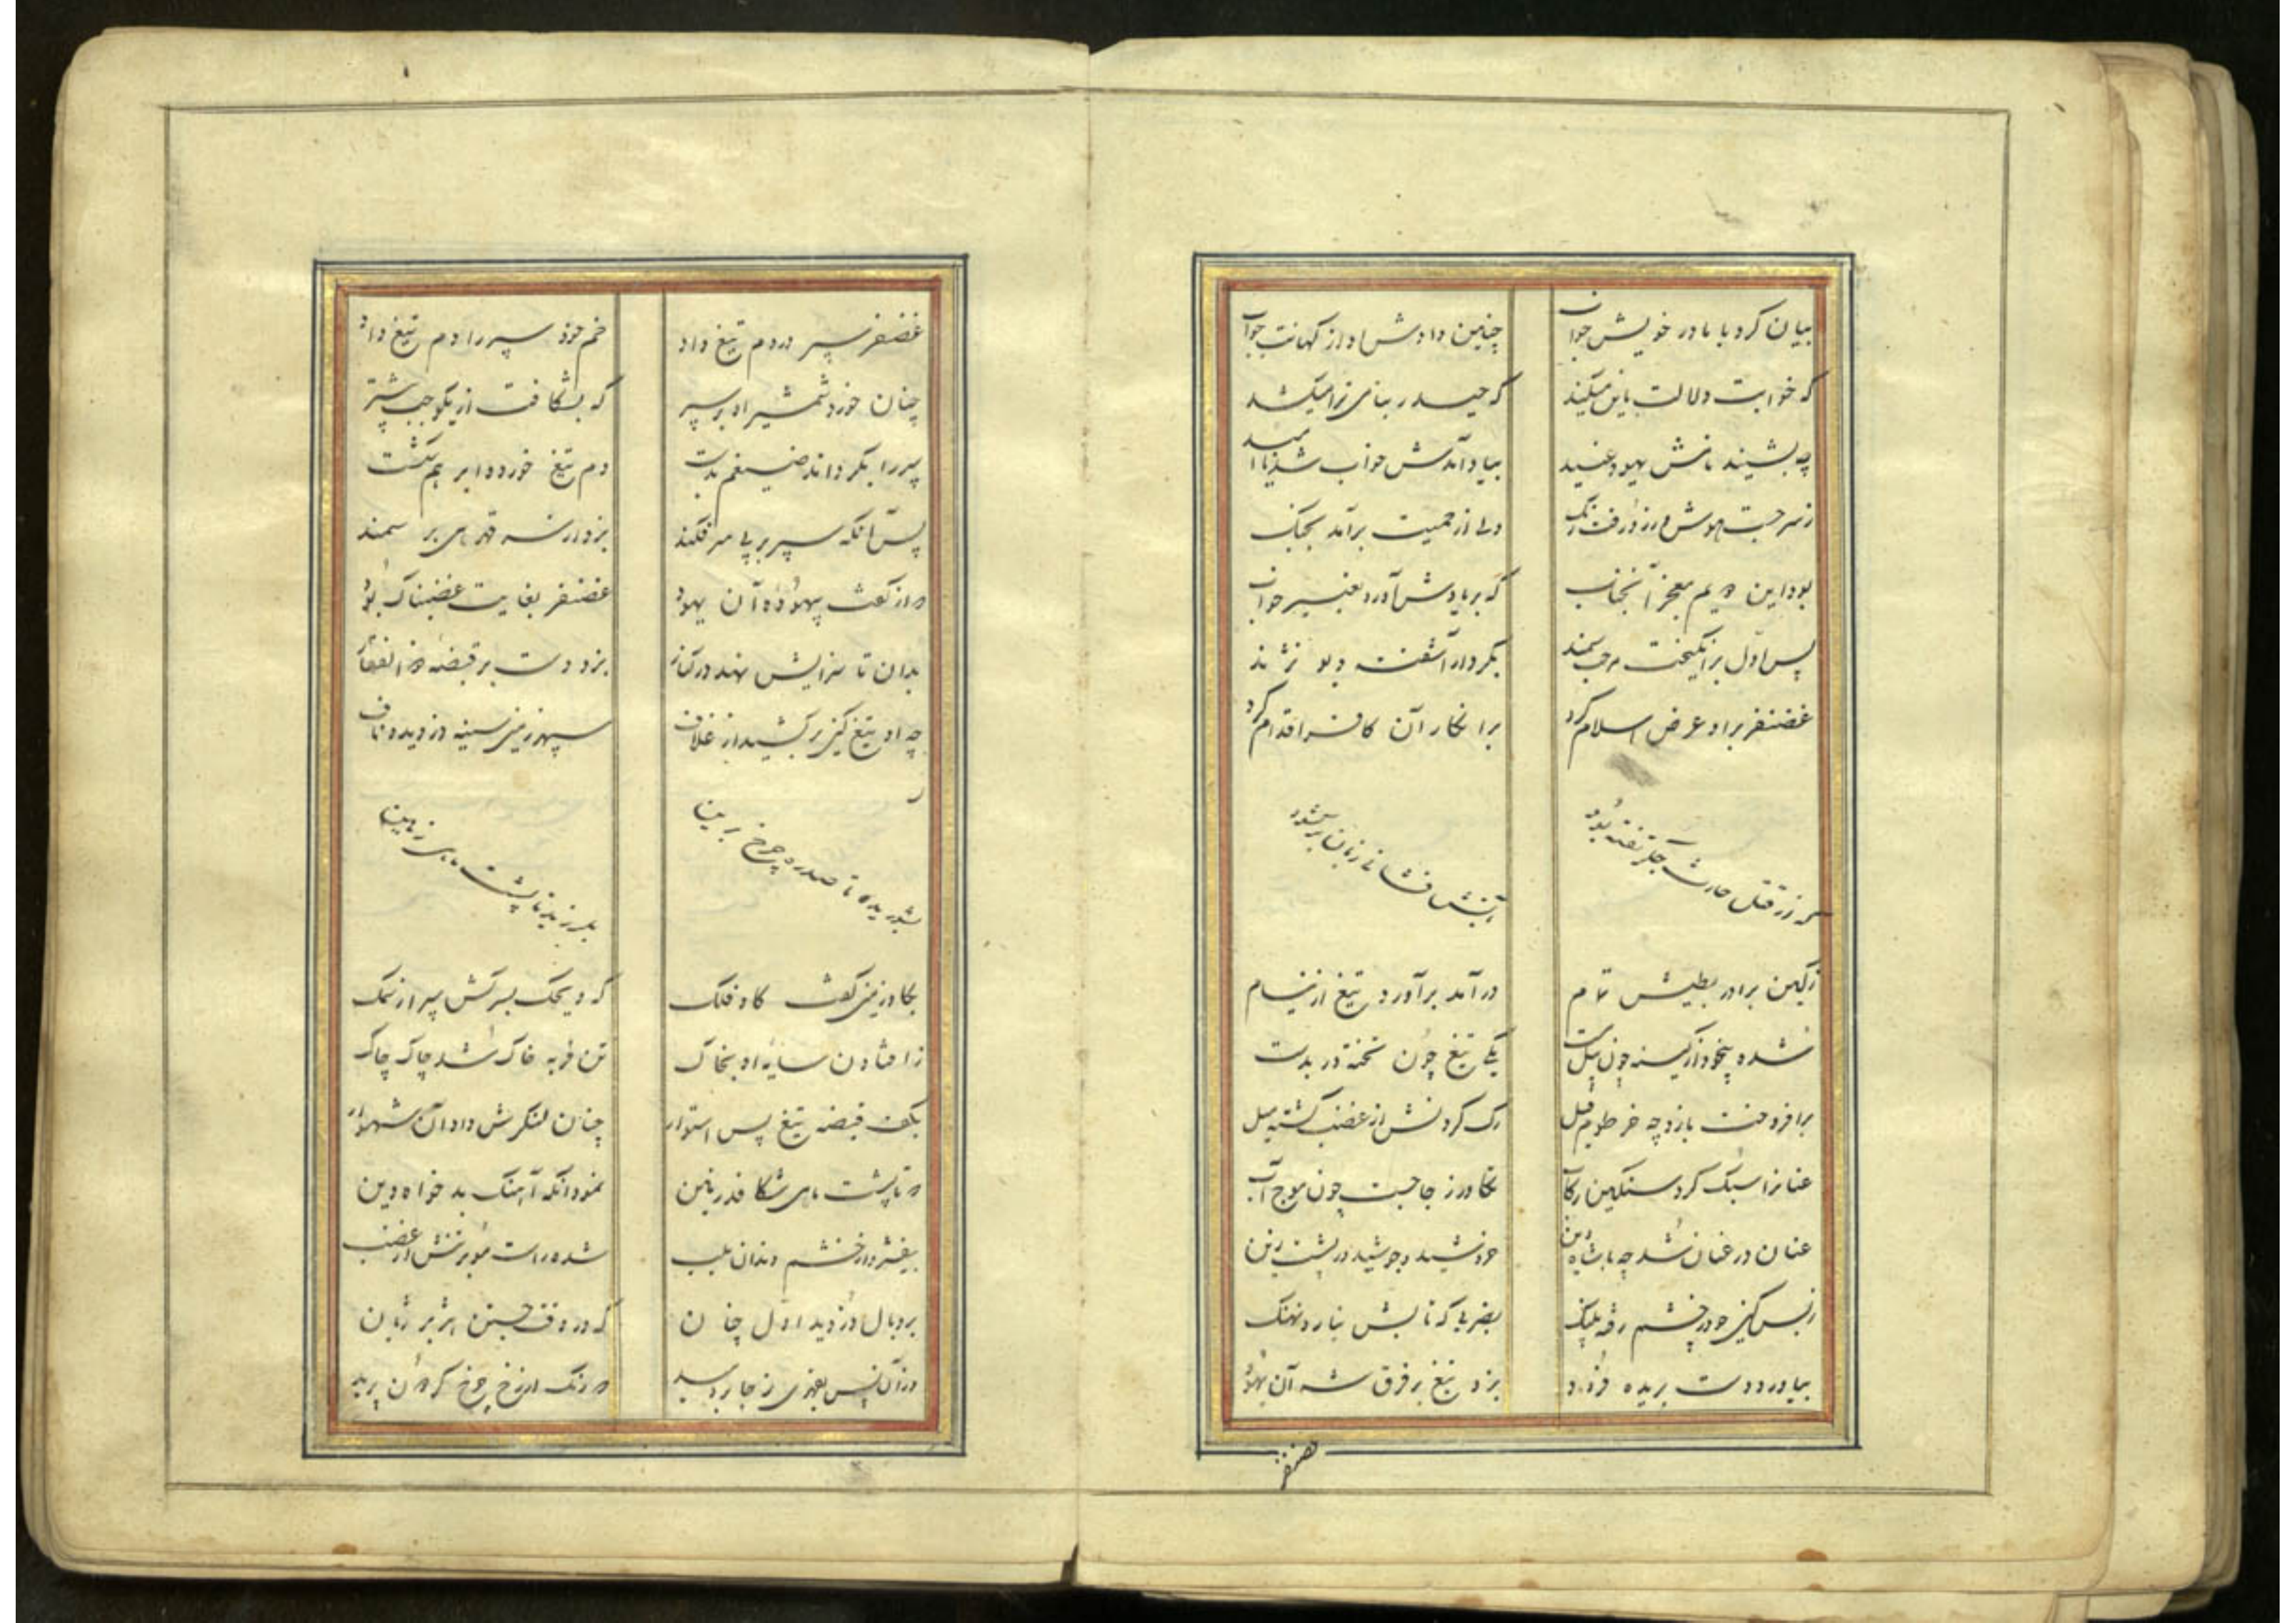 بیان کرد با مادر خویش خواب چنین دادش او از کهانت جواب
که خوابت دلالت باین میکند که حیدر بنامی ترا میکشد
چه بشنید نامش یهود عنید بیاد آمدش خواب شد ناامید
ز سر جست هوش و ز رو رفت رنگ ولی از حمیت برآمد بجنگ
بود این هم معجز آنجناب که بر یادش آورد تعبیر خواب
پس اول برانگیخت مرحب سمند بکردار آشفته دیو نژند
غضنفر بر او عرض اسلام کرد بر انکار آن کافر اقدام کرد
که از قتل حارث جگر تفته بود بآتش فشانی زبان برگشود
ز کین برادر بطیش تمام درآمد برآورد تیغ از نیام
شده بیخود از کینه چون پیل مست یکی تیغ چون تخته در بدست
برافروخت بازو چه خرطوم فیل رک کردنش از غضب گشته میل
عنانرا سبک کرد سنگین رکاب تکاور ز جا جست چون موج آب
عنان در عنان شد چه با شاه دین خروشید و جوشید در پشت زین
ز بس کین خود خشم رفته پلنگ بضربی که تابش نیارد نهنگ
بیاورد دست بریده فرود بزد تیغ بر فرق شه آن یهود
غضنفر
غضنفر سپر در دم تیغ داد خم خود سپر را دم تیغ داد
چنان خورد شمشیر او بر سپر که بشکافت از یکوجب بیشتر
سپر را بگرداند ضیغم بدست دم تیغ خورد و بر هم شکست
پس آنگه سپر بر پی سر فکند بزد ارنه قدمی بر سمند
در از گفت بیهوده آن یهود غضنفر بغایت غضبناک بود
بدان تا سزایش نهد در کنار بزد دست بر قبضه ذوالفقار
چه او تیغ کین برکشید از غلاف سپهر زمین سینه دزدید و ناف
بشورید تا صدره چرخ برین بلرزید تا پشت ماهی زمین
بگاو زمین گفت گاو فلک که دیگ بسر کش سپر از سمک
ز افتادن سایه او بخاک تن فربه خاک شد چاک چاک
بکف قبضه تیغ پس استوار چنان لنگرش داد آن شهسوار
که تا پشت ماهی شکافد زمین نمود آنگه آهنگ بدخواه دین
بیفشرد از خشم دندان بلب شده راست مو بر تنش از غضب
بر و بال دزدید اول چنان که در وقت جستن هژبر ژیان
در آن پس بقهری ز جا بردمید که رنگ از رخ چرخ گردون پرید